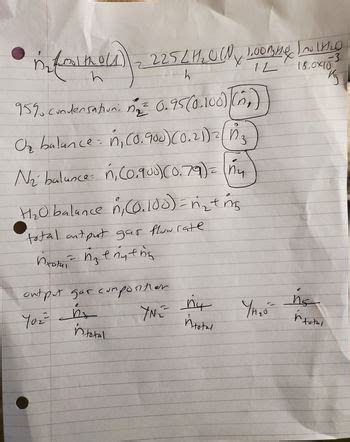 ṅ₂ (mol H₂O(l) / h) = 225 L H₂O(l) / h × 1.00 kg H₂O / 1 L × 1 mol H₂O / 18.0×10⁻³ kg
95% condensation: ṅ₂ = 0.95(0.100)(ṅ₁)
O₂ balance: ṅ₁(0.900)(0.21) = ṅ₃
N₂ balance: ṅ₁(0.900)(0.79) = ṅ₄
H₂O balance ṅ₁(0.100) = ṅ₂ + ṅ₅
total output gas flow rate
ṅtotal = ṅ₃ + ṅ₄ + ṅ₅
output gas composition
yO₂ = ṅ₃ / ṅtotal yN₂ = ṅ₄ / ṅtotal yH₂O = ṅ₅ / ṅtotal